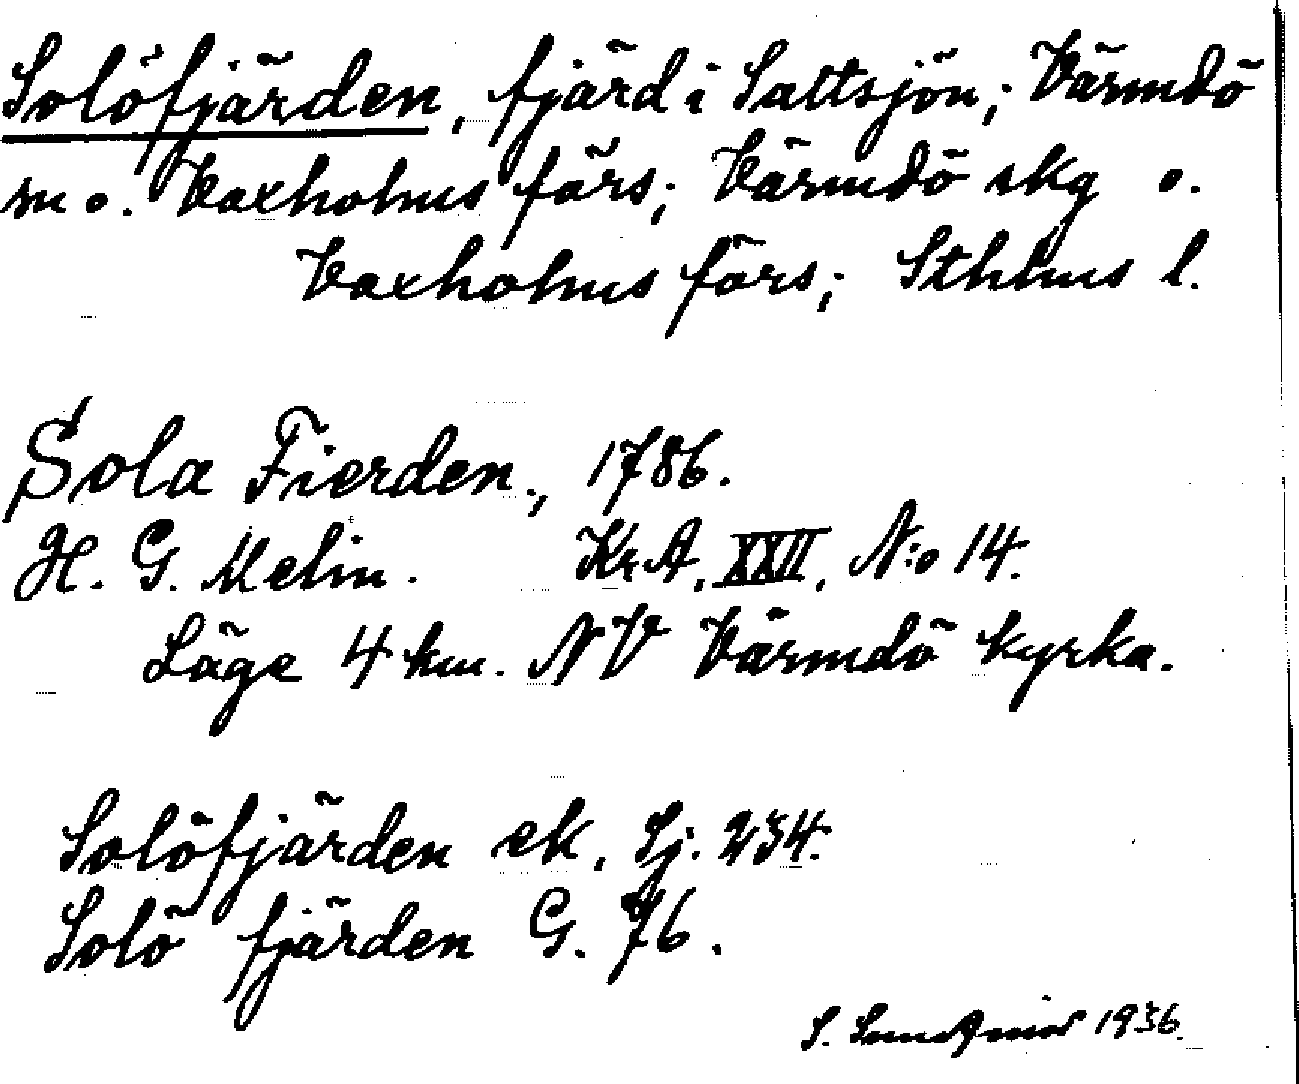 Solöfjärden, fjärd i Saltsjön; Värmdö
m o. Vaxholms förs; Värmdö skg o.
Vaxholms förs; Sthlms l.
Sola Fierden., 1786.
H. G. Melin. Kr.A. XXII. N:o 14.
Läge 4 km. NV Värmdö kyrka.
Solöfjärden ek. Sj. 234.
Solö fjärden G. 76.
S. 1936.